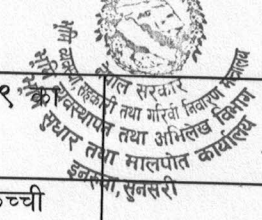 नेपाल सरकार
भूमि व्यवस्था, सहकारी तथा गरिवी निवारण मन्त्रालय
भूमि व्यवस्थापन तथा अभिलेख विभाग
सुधार तथा मालपोत कार्यालय
इनरुवा, सुनसरी
९ का
च्ची